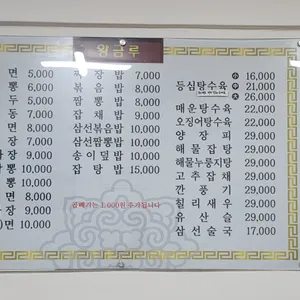 황금루
면 5,000
뽕 6,000
두 5,000
동 7,000
면 8,000
장 9,000
뽕 9,000
장 10,000
뽕 10,000
면 8,000
장 9,000
)면 10,000
짜장밥 7,000
볶음밥 8,000
짬뽕밥 8,000
잡채밥 9,000
삼선볶음밥 10,000
삼선짬뽕밥 10,000
송이덮밥 10,000
잡탕밥 15,000
곱빼기는 1,000원 추가됩니다
등심탕수육 小 16,000
中 21,000
大 26,000
매운탕수육 22,000
오징어탕수육 22,000
양장피 29,000
해물잡탕 29,000
해물누룽지탕 29,000
고추잡채 29,000
깐풍기 29,000
칠리새우 29,000
유산슬 29,000
삼선술국 17,000